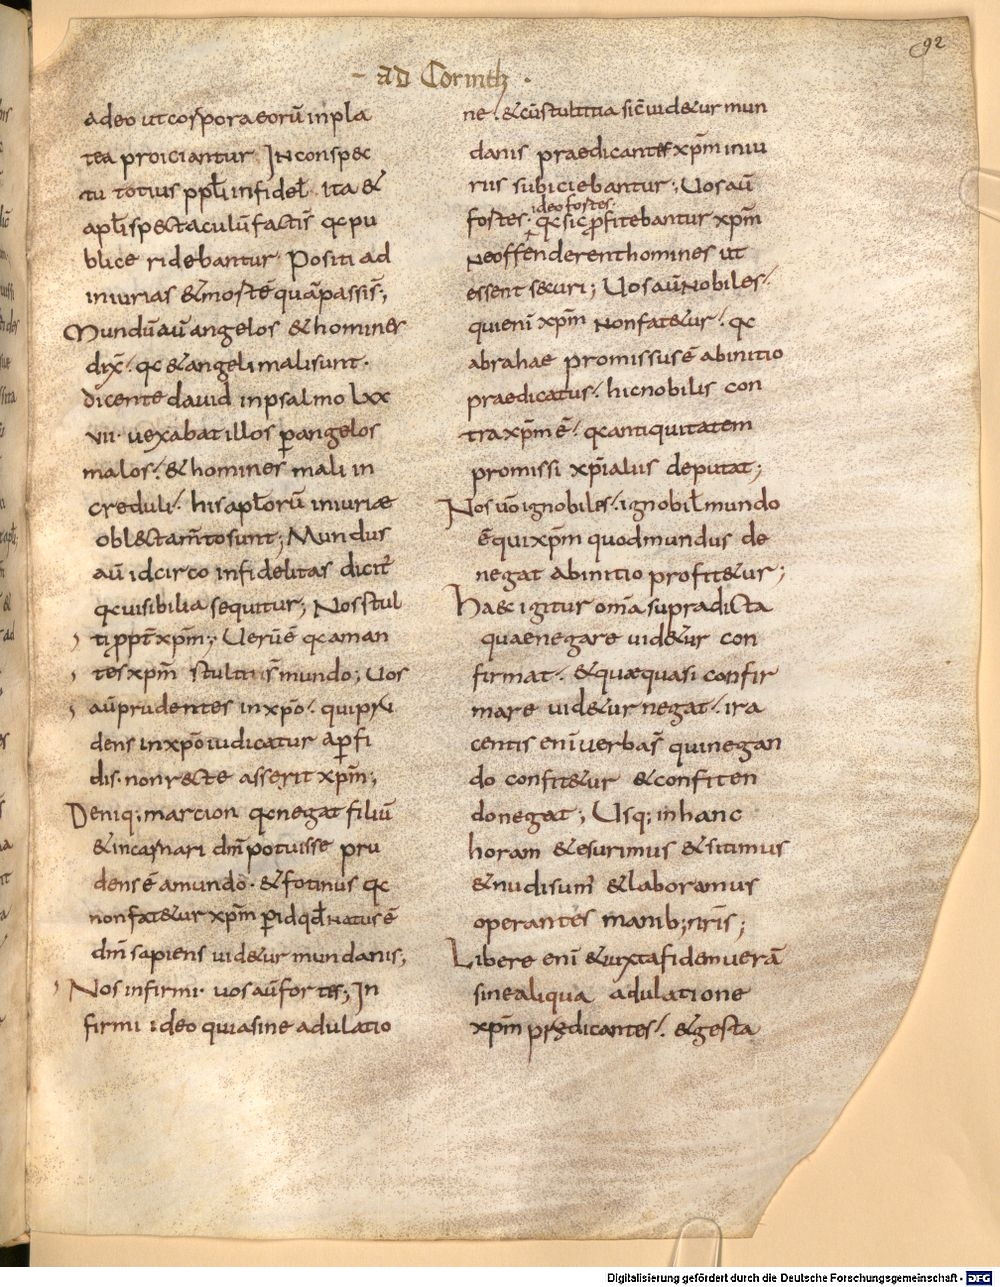 92
– ad Corinth ·
adeo ut corpora eorū in pla
tea proiciantur. In conspec
tu totius ppłi infideł. ita &
apłi spectaculū factis̄ qc pu
blice ridebantur. Positi ad
iniurias & mortē quā passis̄;
Mundū aū angelos & homines
dix̄. qc & angeli mali sunt.
dicente david in psalmo lxx
vii. vexabat illos p angelos
malos. & homines mali in
creduli. his apłorū iniuriae
oblectam̄to sunt; Mundus
aū idcirco infidelitas dicit̄
qc visibilia sequitur; Nos stul
ti ppt̄ xp̄m; Verū ē qc aman
tes xp̄m stulti s̄ mundo; Vos
aū prudentes in xp̄o. qui pru
dens in xp̄o iudicatur a perfi
dis. non recte asserit xp̄m;
Deniq; marcion qc negat filiū
& incarnari dm̄ potuisse pru
dens ē a mundo. & fotinus qc
non fatetur xp̄m p id qd natus ē
dm̄ sapiens uidetur mundanis;
Nos infirmi. uos aū fortes; In
firmi ideo quia sine adulatio
ne. & cū stultitia sic̄ uidetur mun
danis praedicantes xp̄m iniu
riis subiciebantur; Vos aū
ideo fortes.
fortes. qc sic pfitebantur xp̄m
Ne offenderent homines ut
essent securi; Vos aū Nobiles.
qui eni xp̄m Non fatetur. qc
abrahae promissus ē ab initio
praedicatus. hic nobilis con
tra xp̄m ē. qc antiquitatem
promissi xp̄i aliis deputat;
Nos uō ignobiles. ignobił mundo
ē qui xp̄m quod mundus de
negat ab initio profitetur;
Haec igitur om̄a supradicta
quae negare uidetur con
firmat. & quae quasi confir
mare uidetur negat. ira
centis eni uerba s̄ qui negan
do confitetur & confiten
do negat; Usq; in hanc
horam & esurimus & sitimus
& nudi sum̄ & laboramus
operantes manib; nr̄is;
Libere eni & iuxta fidem uerā
sine aliqua adulatione
xp̄m predicantes. & gesta
Digitalisierung gefördert durch die Deutsche Forschungsgemeinschaft - DFG